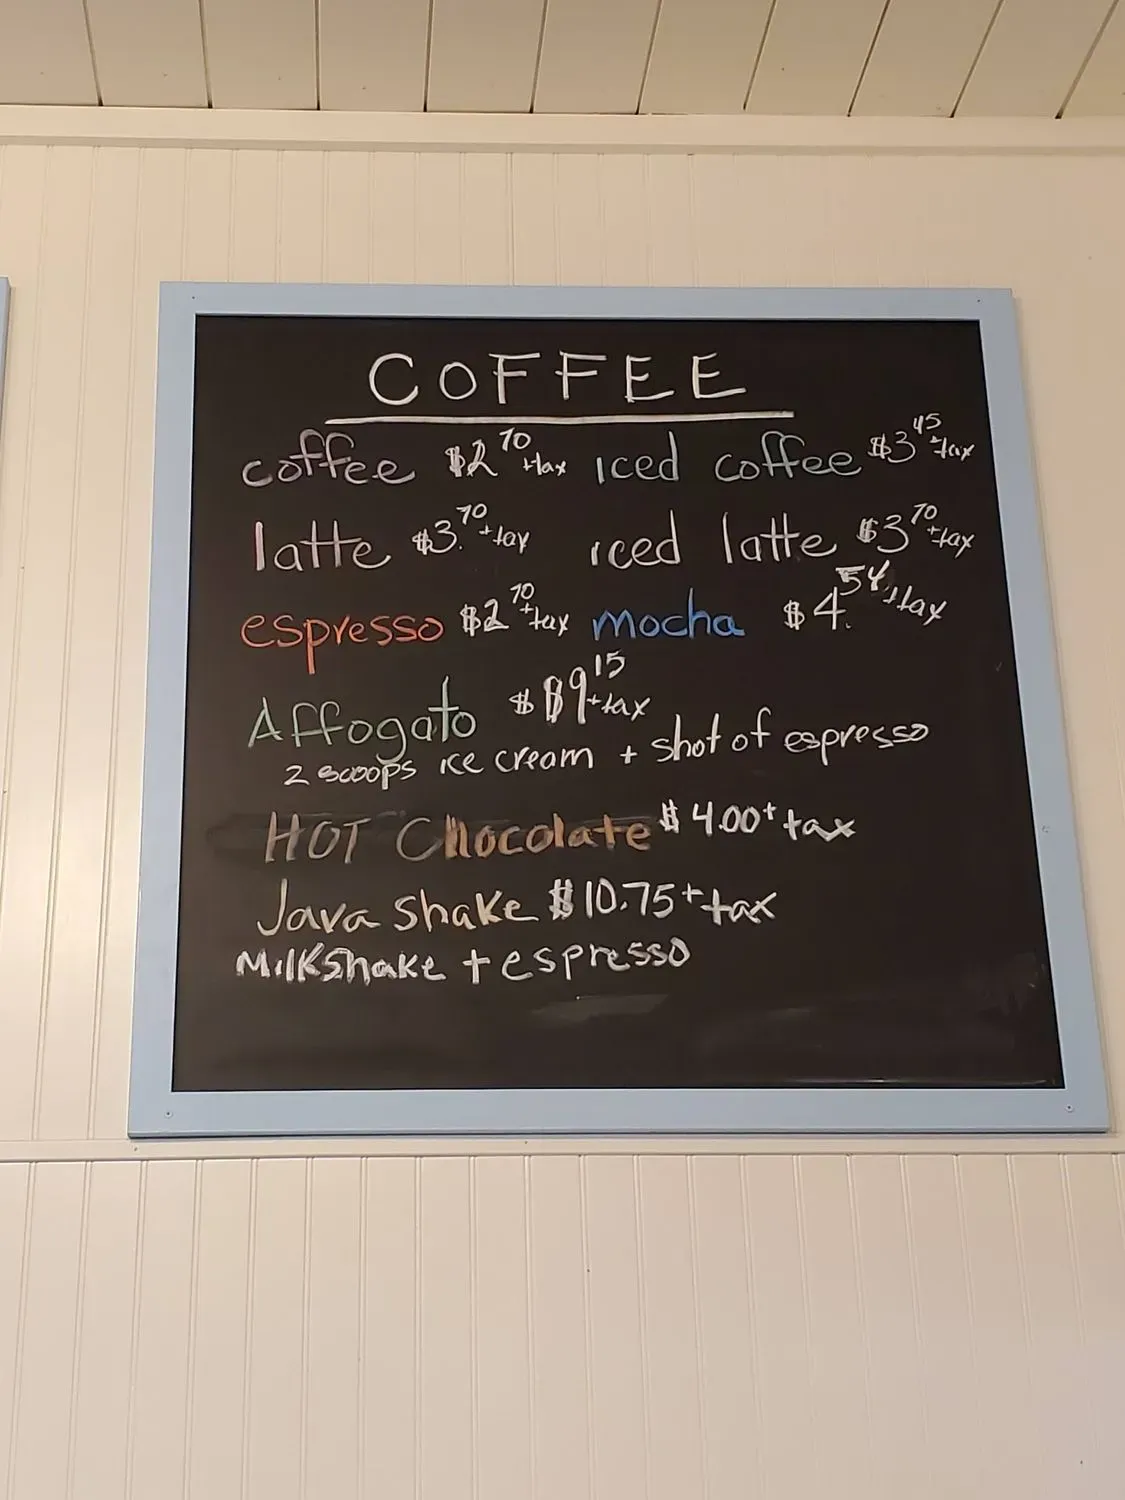 COFFEE
coffee $2 70 +tax iced coffee $3 45 +tax
latte $3. 70 +tax iced latte $3 70 +tax
espresso $2 70 +tax mocha $4. 54 +tax
Affogato $ $9 15 +tax
2 scoops ice cream + shot of espresso
HOT Chocolate $4.00 + tax
Java shake $10.75 + tax
Milkshake + espresso